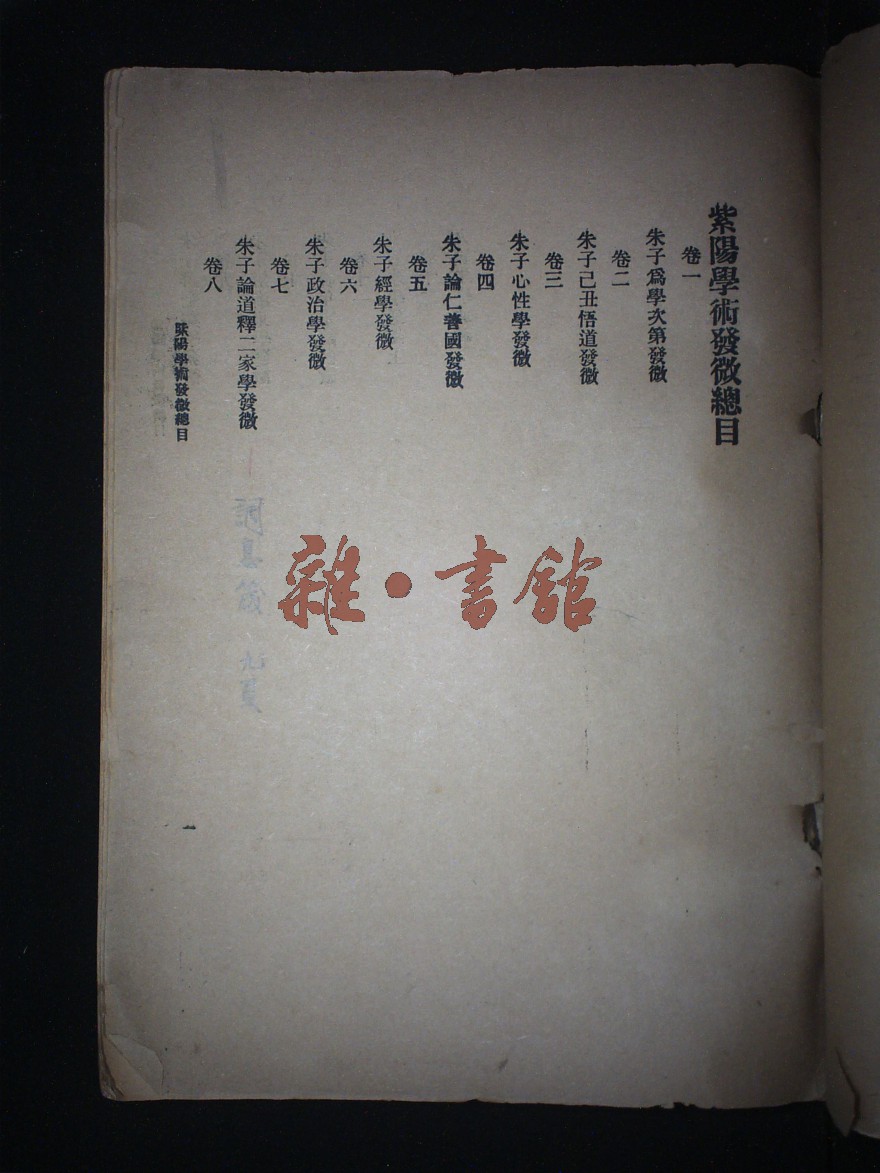 紫陽學術發微總目
卷一
朱子爲學次第發微
卷二
朱子己丑悟道發微
卷三
朱子心性學發微
卷四
朱子論仁善國發微
卷五
朱子經學發微
卷六
朱子政治學發微
卷七
朱子論道釋二家學發微
卷八
紫陽學術發微總目
一
雜·書館